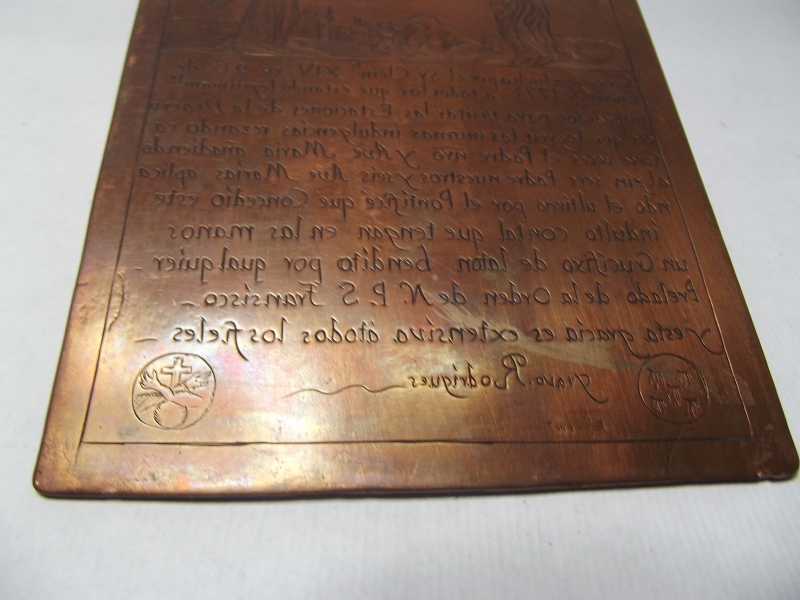 Concecion hecha por el Sr Clemte XIV en 26 de
Enero de 1773 á todos los que estando legitimamte
impedidos para visitar las Estaciones de la Viacru
cis que logren las mismas indulgencias rezando ca
torce veces el Padre nro y Ave Maria anadiendo
al fin seis Padre nuestros y seis Ave Marias aplica
ndo el ultimo por el Pontifice que Concedio este
indulto contal que tengan en las manos
un Crucifixo de laton bendito por qualquier
Prelado dela Orden de N. P. S. Fransisco
y esta gracia es extensiva átodos los fieles
gravo. Rodrigues